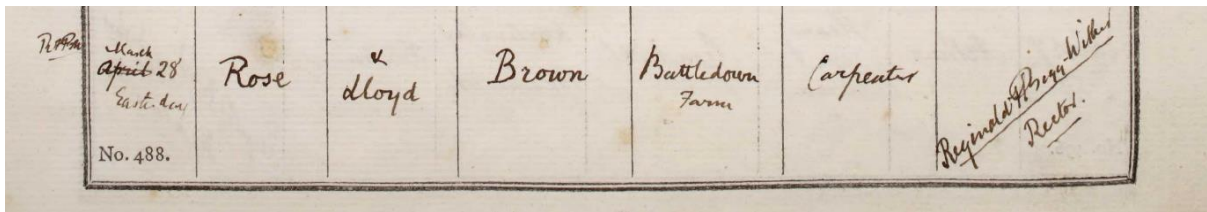 March
April 28
Easter day
No. 488.
Rose
&
Lloyd
Brown
Battledown
Farm
Carpenter
Reginald F Bigg-Wither
Rector.